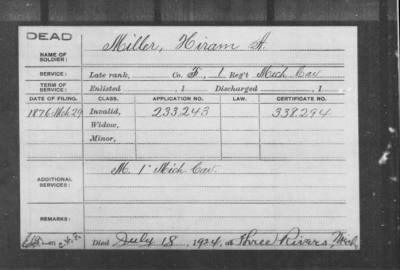 DEAD
NAME OF SOLDIER: Miller, Hiram A.
SERVICE: Late rank, Co. F, 1 Reg't Mich Cav
TERM OF SERVICE: Enlisted , 1 Discharged , 1
DATE OF FILING. CLASS. APPLICATION NO. LAW. CERTIFICATE NO.
1876-Mch 29 Invalid, 233.243 338.294
Widow,
Minor,
ADDITIONAL SERVICES: M. 1" Mich Cav.
REMARKS:
Died July 18, 1924, at Three Rivers, Mich.